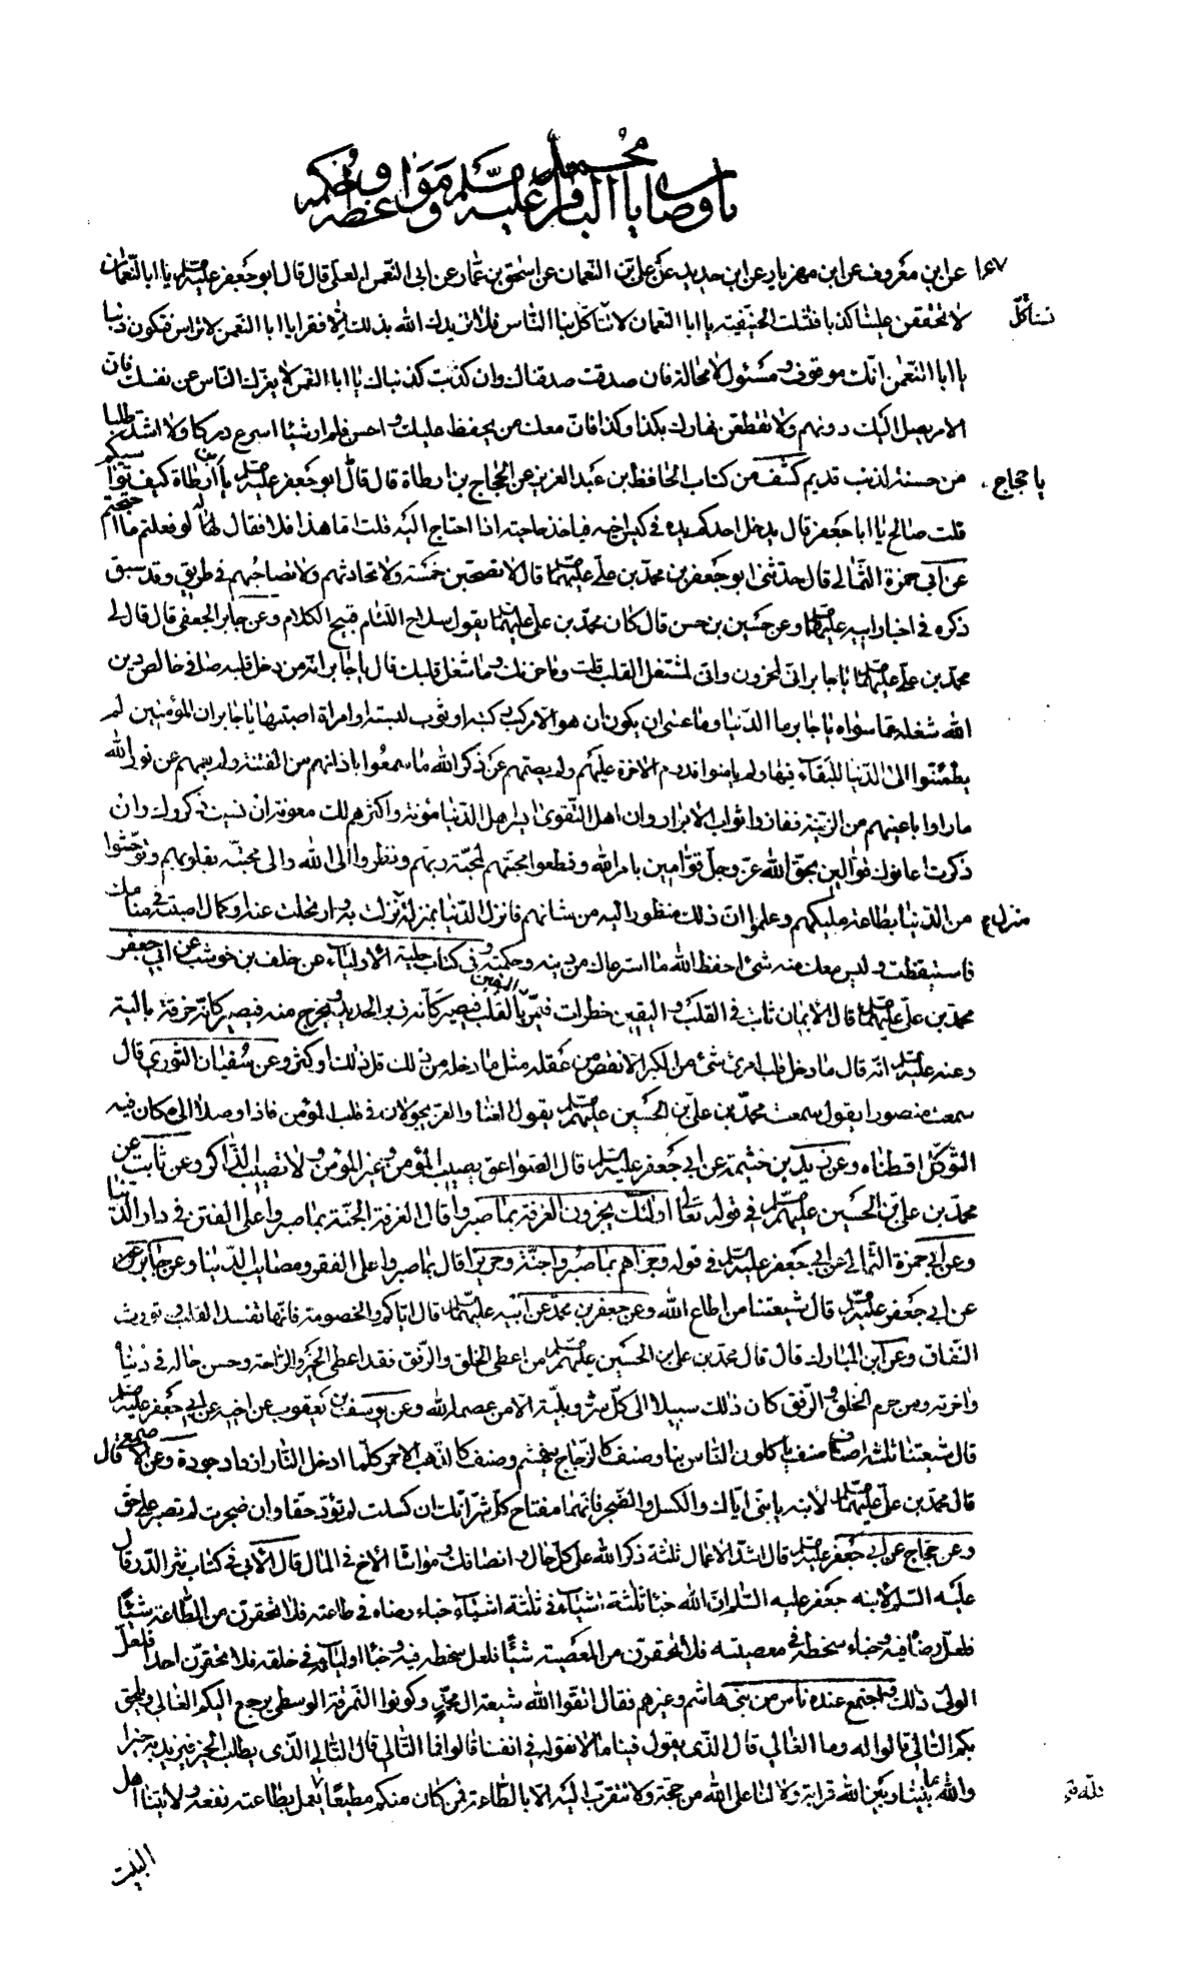 باب وصايا محمد الباقر عليه السلم ومواعظه وحكمه
عن ابن معروف عن ابن مهزيار عن ابن حديد عن علي بن النعمان عن اسحق بن عمار عن ابي النعمن العجلي قال قال ابو جعفر عليه السلم يا ابا النعمان
لا تحققن علينا كذبا فتسلب الحنيفية يا ابا النعمان لا تستأكل بنا الناس فلا يزيدك الله بذلك الا فقرا يا ابا النعمن لا ترأس فتكون ذنبا
تستأكل
يا ابا النعمن انك موقوف ومسئول لا محالة فان صدقت صدقناك وان كذبت كذبناك يا ابا النعمن لا يغرك الناس عن نفسك فان
الامر يصل اليك دونهم ولا تقطعن نهارك بكذا وكذا فان معك من يحفظ عليك واحسن فلم ار شيئا اسرع دركا ولا اشد طلبا
من حسنة لذنب قديم كشف من كتاب الحافظ بن عبد العزيز عن الحجاج بن ارطاة قال قال ابو جعفر عليه السلم يا ابن ارطاة كيف تواسيكم
يا حجاج
قلت صالح يا ابا جعفر قال يدخل احدكم يده في كيس اخيه فياخذ حاجته اذا احتاج اليه قلت اما هذا فلا فقال اما لو فعلتم ما احتجتم
عن ابي حمزة الثمالي قال حدثني ابو جعفر بن محمد بن علي عليهما السلم قال لا تصحبن خمسة ولا تحادثهم ولا تصاحبهم في طريق وقد سبق
ذكره في اخبار ابيه عليهما السلم وعن حسين بن حسن قال كان محمد بن علي عليهما السلم يقول سلاح اللئام قبيح الكلام وعن جابر الجعفي قال قال لي
محمد بن علي عليهما السلم يا جابر اني لمحزون واني لمشتغل القلب قلت وما حزنك وما شغل قلبك قال يا جابر انه من دخل قلبه صافي خالص دين
الله شغله عما سواه يا جابر ما الدنيا وما عسى ان يكون ان هو الا مركب ركبته او ثوب لبسته او امراة اصبتها يا جابر ان المؤمنين لم
يطمئنوا الى الدنيا للبقاء فيها ولم يامنوا قدوم الاخرة عليهم ولم يصمهم عن ذكر الله ما سمعوا باذانهم من الفتنة ولم يعمهم عن نور الله
ما راوا باعينهم من الزينة ففازوا ثواب الابرار وان اهل التقوى ايسر اهل الدنيا مؤنة واكثرهم لك معونة ان نسيت ذكروك وان
ذكرت اعانوك قوالين بحق الله عز وجل قوامين بامر الله وقطعوا محبتهم لمحبة ربهم ونظروا الى الله والى محبته بقلوبهم وتوحشوا
من الدنيا بطاعة مليكهم وعلموا ان ذلك منظور اليه من شانهم فانزل الدنيا بمنزلة نزلت به وارتحلت عنه او كمال اصبته في منامك
منزل م
فاستيقظت وليس معك منه شئ احفظ الله ما استرعاك من دينه وحكمته وفي كتاب حلية الاولياء عن خلف بن حوشب عن ابي جعفر
محمد بن علي عليهما السلم قال الايمان ثابت في القلب واليقين خطرات فيمر اليقين بالقلب فيصير كانه زبر الحديد ويخرج منه فيصير كانه خرقة بالية
وعنه عليه السلم انه قال ما دخل قلب امرئ شئ من الكبر الا نقص من عقله مثل ما دخله من ذلك قل ذلك او كثر وعن سفيان الثوري قال
سمعت منصورا يقول سمعت محمد بن علي بن الحسين عليهم السلم يقول الغنا والعز يجولان في قلب المؤمن فاذا وصلا الى مكان فيه
التوكل اقطناه وعن زيد بن خيثمة عن ابي جعفر عليه السلم قال الصواعق يصيب المؤمن وغير المؤمن ولا تصيب الذاكر وعن ثابت عن
محمد بن علي بن الحسين عليهم السلم في قوله تعالى اولئك يجزون الغرفة بما صبروا قال الغرفة الجنة بما صبروا على الفتن في دار الدنيا
وعن ابي حمزة الثمالي عن ابي جعفر عليه السلم في قوله وجزاهم بما صبروا جنة وحريرا قال بما صبروا على الفقر ومصائب الدنيا وعن جابر
عن ابي جعفر عليه السلم قال شيعتنا من اطاع الله وعن جعفر بن محمد عن ابيه عليهما السلم قال اياكم والخصومة فانها تفسد القلب وتورث
النفاق وعن ابن المبارك قال قال محمد بن علي بن الحسين عليهم السلم من اعطي الخلق والرفق فقد اعطي الخير والراحة وحسن حاله في دنياه
واخرته ومن حرم الخلق والرفق كان ذلك سبيلا الى كل شر وبلية الا من عصمه الله وعن يوسف بن يعقوب عن اخيه عن ابي جعفر عليه السلم
قال شيعتنا ثلثة اصناف صنف ياكلون الناس بنا وصنف كالزجاج يتهشم وصنف كالذهب الاحمر كلما ادخل النار ازداد جودة وعن الاصمعي قال
قال محمد بن علي عليهما السلم لابنه يا بني اياك والكسل والضجر فانهما مفتاح كل شر انك ان كسلت لم تؤد حقا وان ضجرت لم تصبر على حق
وعن حجاج عن ابي جعفر عليه السلم قال اشد الاعمال ثلثة ذكر الله على كل حال وانصافك ومواساة الاخ في المال قال الابي في كتاب نثر الدرر قال
عليه السلم لابنه جعفر عليه السلم ان الله خبأ ثلثة اشياء في ثلثة اشياء خباء رضاه في طاعته فلا تحقرن من الطاعة شيئا
فلعل رضاه فيه وخباء سخطه في معصيته فلا تحقرن من المعصية شيئا فلعل سخطه فيه وخبأ اولياءه في خلقه فلا تحقرن احدا فلعل
الولي ذلك واجتمع عنده ناس من بني هاشم وغيرهم فقال اتقوا الله شيعة ال محمد وكونوا النمرقة الوسطى يرجع اليكم الغالي ويلحق
بكم التالي قالوا له وما الغالي قال الذي يقول فينا ما لا نقوله في انفسنا قالوا فما التالي قال التالي الذي يطلب الخير فيزيد به خيرا
والله ما بيننا وبين الله قرابة ولا لنا على الله من حجة ولا نتقرب اليه الا بالطاعة فمن كان منكم مطيعا يعمل بطاعته نفعته ولايتنا اهل
البيت